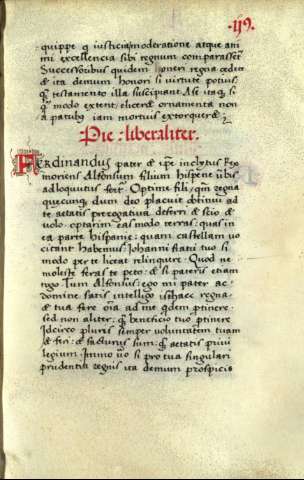 ·119·
quippe q iusticia moderatione atque ani
mi excellencia sibi regnum comparasset
Successoribus quidem oneri regna credita
et ita demum honori si virtute potius
q testamento illa suscipiant. Ase itaq si
q modo extent elicere ornamenta non
a patribus iam mortuis extorquere
Pie: liberaliter.
FERdinandus pater et ipse inclytus Rex
moriens Alfonsum filium hispane verbis
adloquutus fertur. Optime fili quom regna
quecunq dum deo placuit obtinui ad
te aetatis prerogatiua deferri et scio et
volo. optarim eas modo terras: quas in
ea parte hispanie: quam castellam vo
citant habemus: Johanni fratri tuo si
modo per te licitat relinquere. Quod ne
moleste feras te peto: et si pateris etiam
rogo. Tum Alfonsus: ego mi pater ac
domine satis intelligo isthaec regna
et tua fere omnia ad me quidem ptinere.
sed non aliter: q beneficio tuo ptinere
Idcirco pluris semper voluntatem tuam
et feci: et facturus sum: q aetatis priui
legium. Immo vero si pro tua singulari
prudentia regnis ita demum prospicis